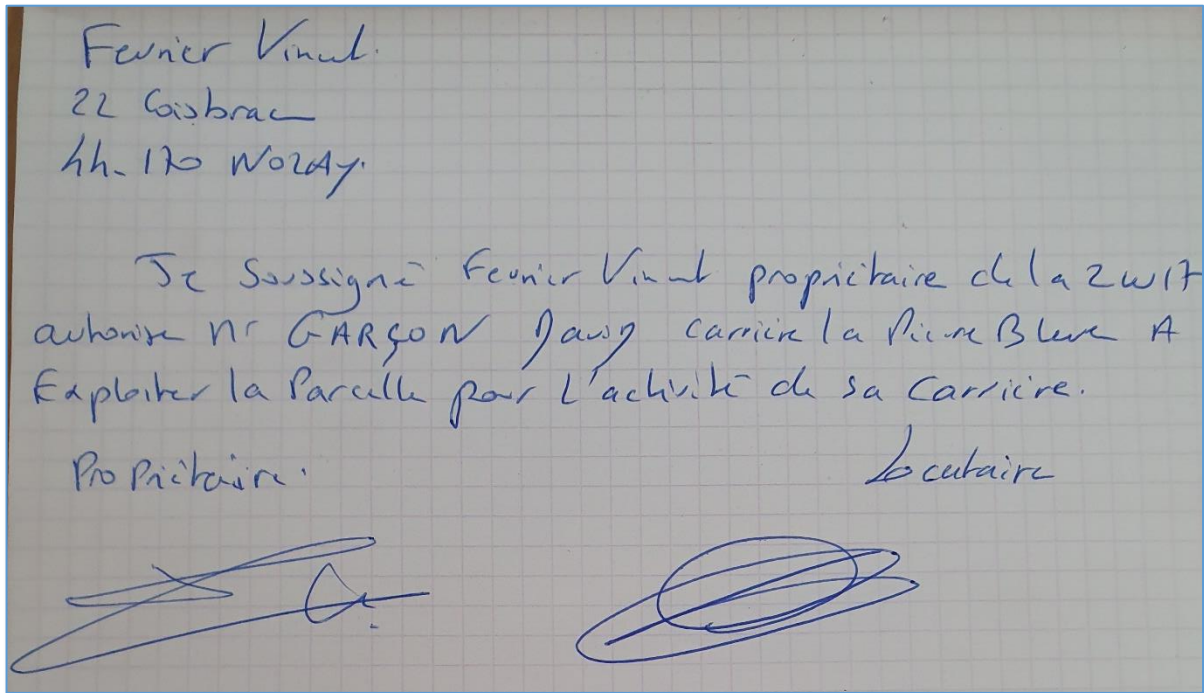 Fevrier Vincent.
22 Coisbrac
44-170 NOZAY.
Je Soussigné Fevrier Vincent propriétaire de la ZW17
autorise Mr GARÇON David carrière la Pierre Bleue A
Exploiter la Parcelle pour L'activité de sa Carrière.
Propriétaire.
Locataire